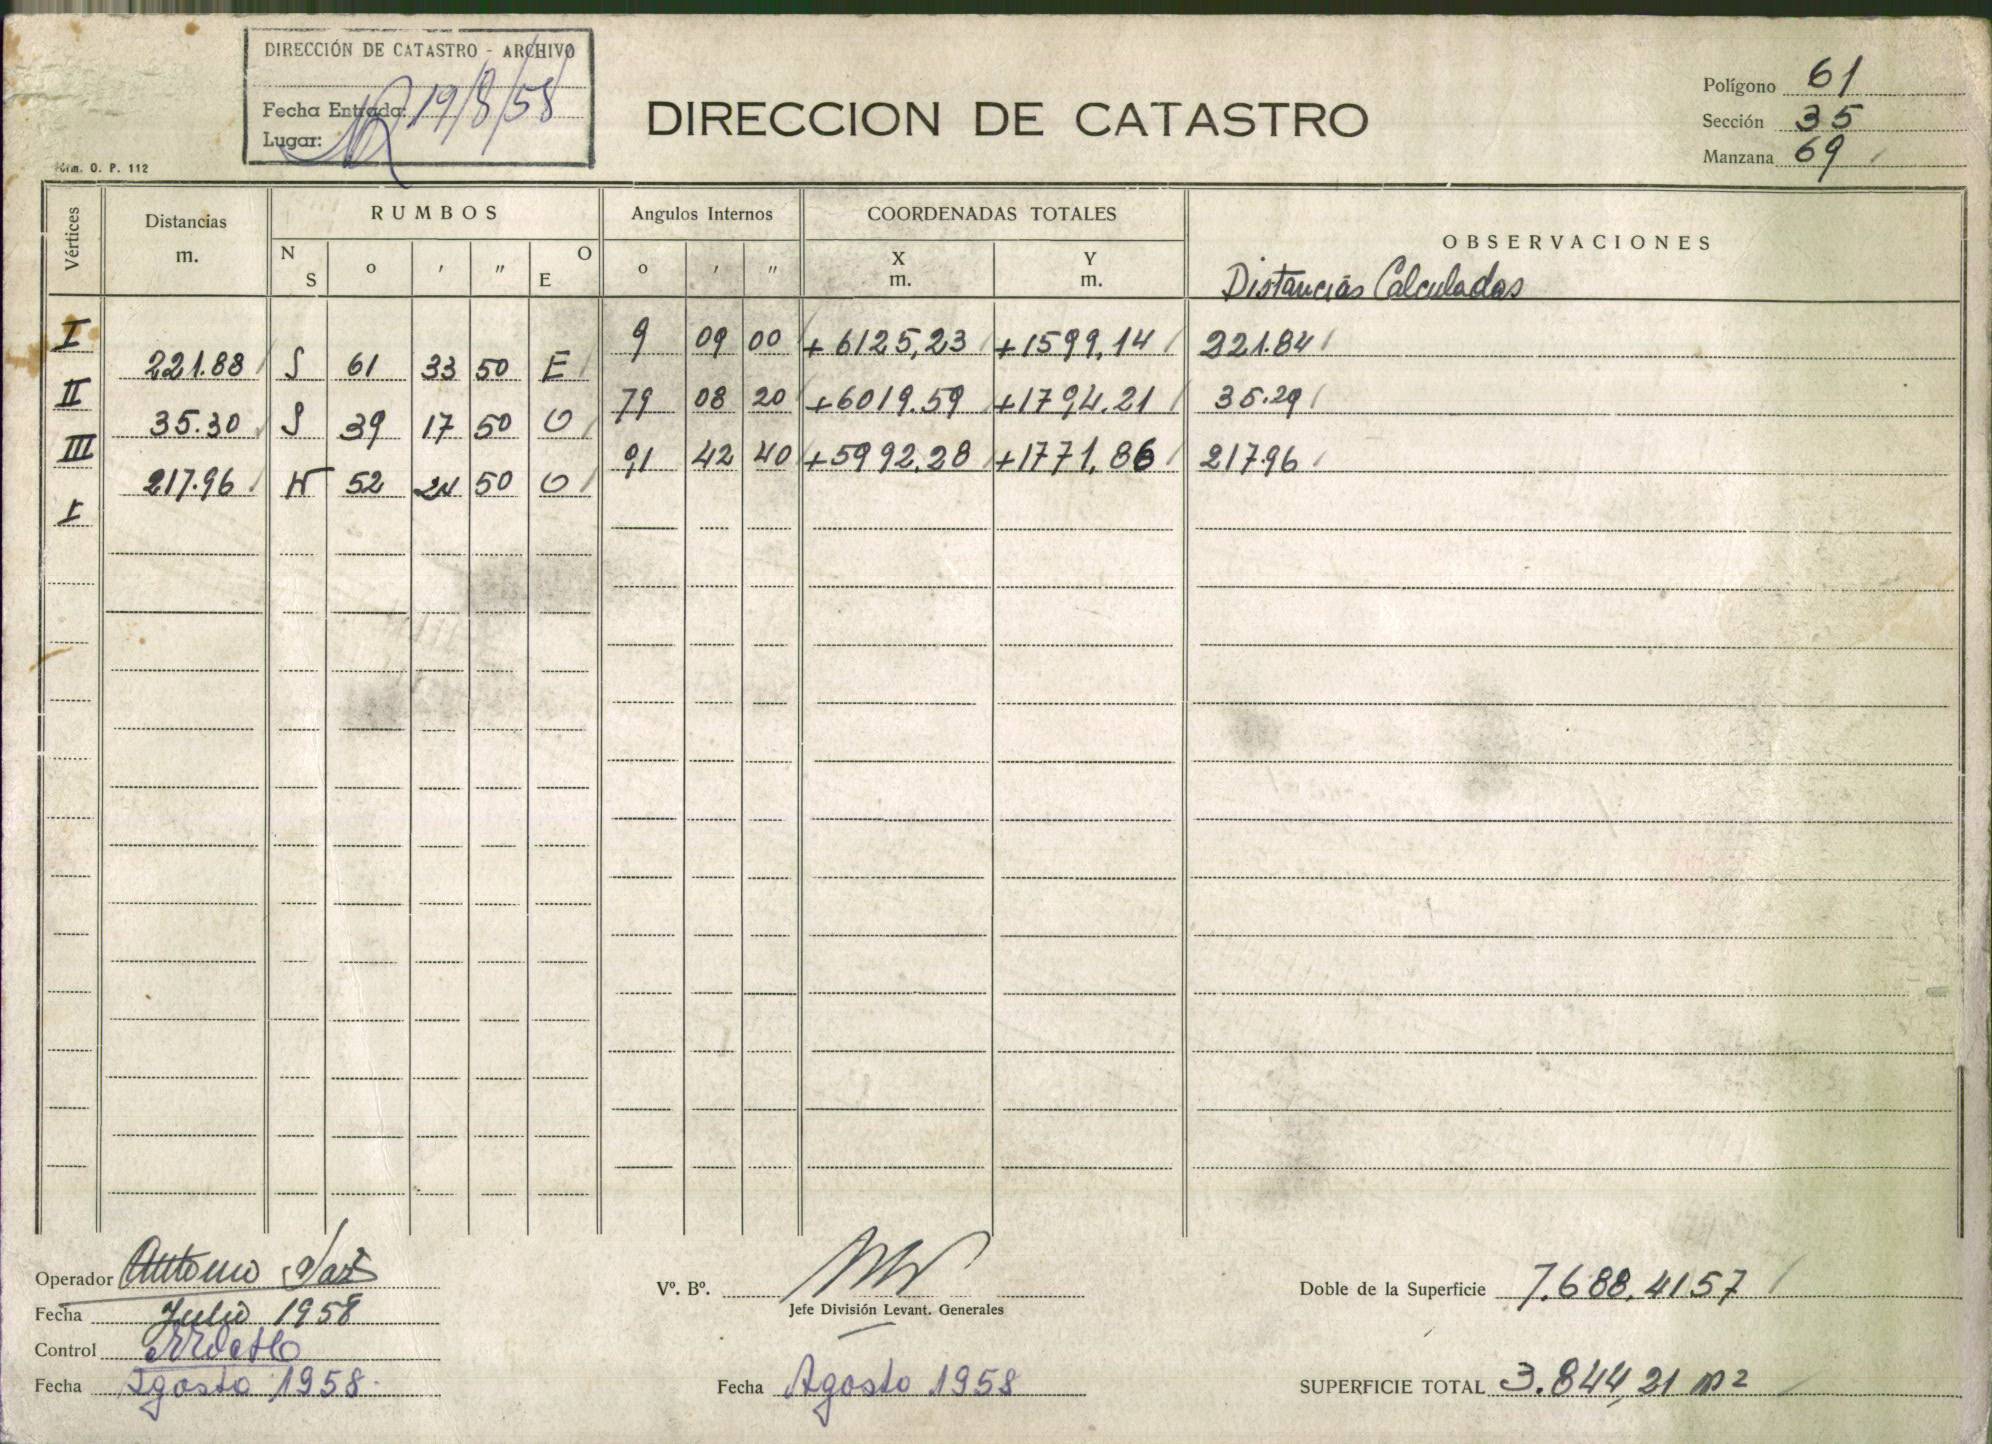 DIRECCIÓN DE CATASTRO - ARCHIVO
Fecha Entrada: 19/8/58
Lugar:
Form. O. P. 112
DIRECCION DE CATASTRO
Polígono 61
Sección 35
Manzana 69
Vértices Distancias m. RUMBOS Angulos Internos COORDENADAS TOTALES OBSERVACIONES
N S o ′ ″ O E o ′ ″ X m. Y m.
Distancias Calculadas
I 9 09 00 +6125,23 +1599,14 221.84
221.88 S 61 33 50 E
II 79 08 20 +6019.59 +1794.21 35.29
35.30 S 39 17 50 O
III 91 42 40 +5992,28 +1771,86 217.96
217.96 N 52 24 50 O
I
Operador Antonio
Fecha Julio 1958
Control
Fecha Agosto 1958
Vº. Bº.
Jefe División Levant. Generales
Fecha Agosto 1958
Doble de la Superficie 7.688,4157
SUPERFICIE TOTAL 3.844,21 m2